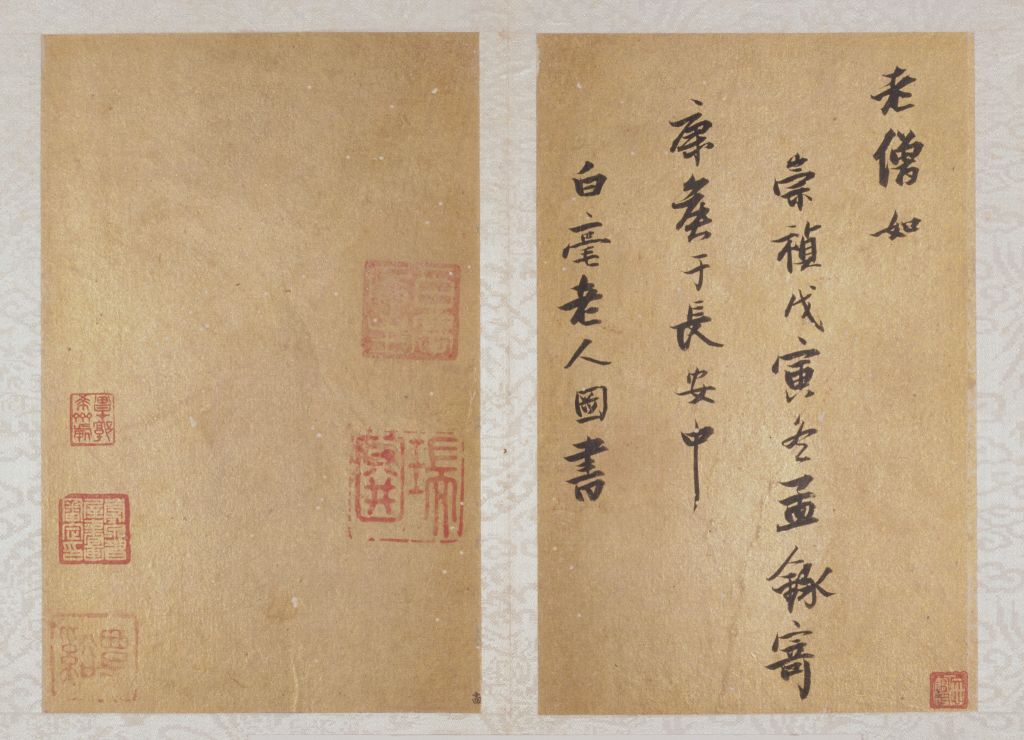 老僧如
崇禎戊寅冬孟録寄
康侯于長安中
白毫老人圖書